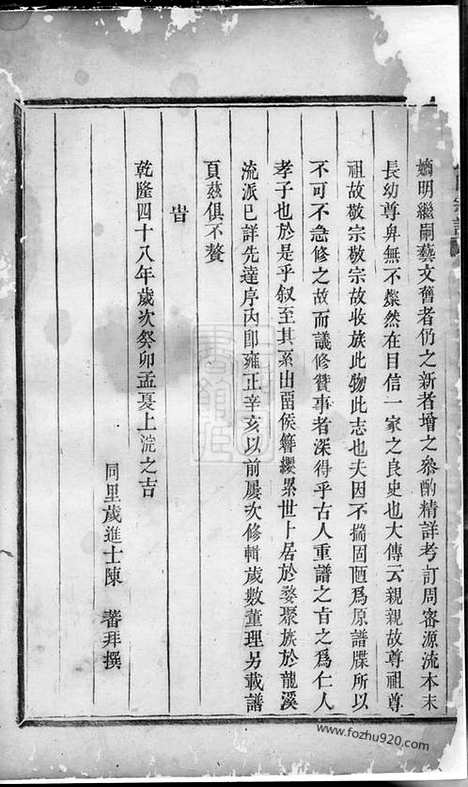 嫡明繼嗣藝文舊者仍之新者增之叅酌精詳考訂周審源流本末
長幼尊卑無不燦然在目信一家之良史也大傳云親親故尊祖尊
祖故敬宗敬宗故收族此物此志也夫因不揣固陋爲原譜牒所以
不可不急修之故而議修贊事者深得乎古人重譜之旨之爲仁人
孝子也於是乎叙至其系出畱侯簪纓累世卜居於婺聚族於龍溪
流派已詳先達序內即雍正辛亥以前屢次修輯歲數董理另載譜
頁茲俱不贅
旹
乾隆四十八年歲次癸卯孟夏上浣之吉
同里歲進士陳 蕃拜撰
www.fozhu920.com